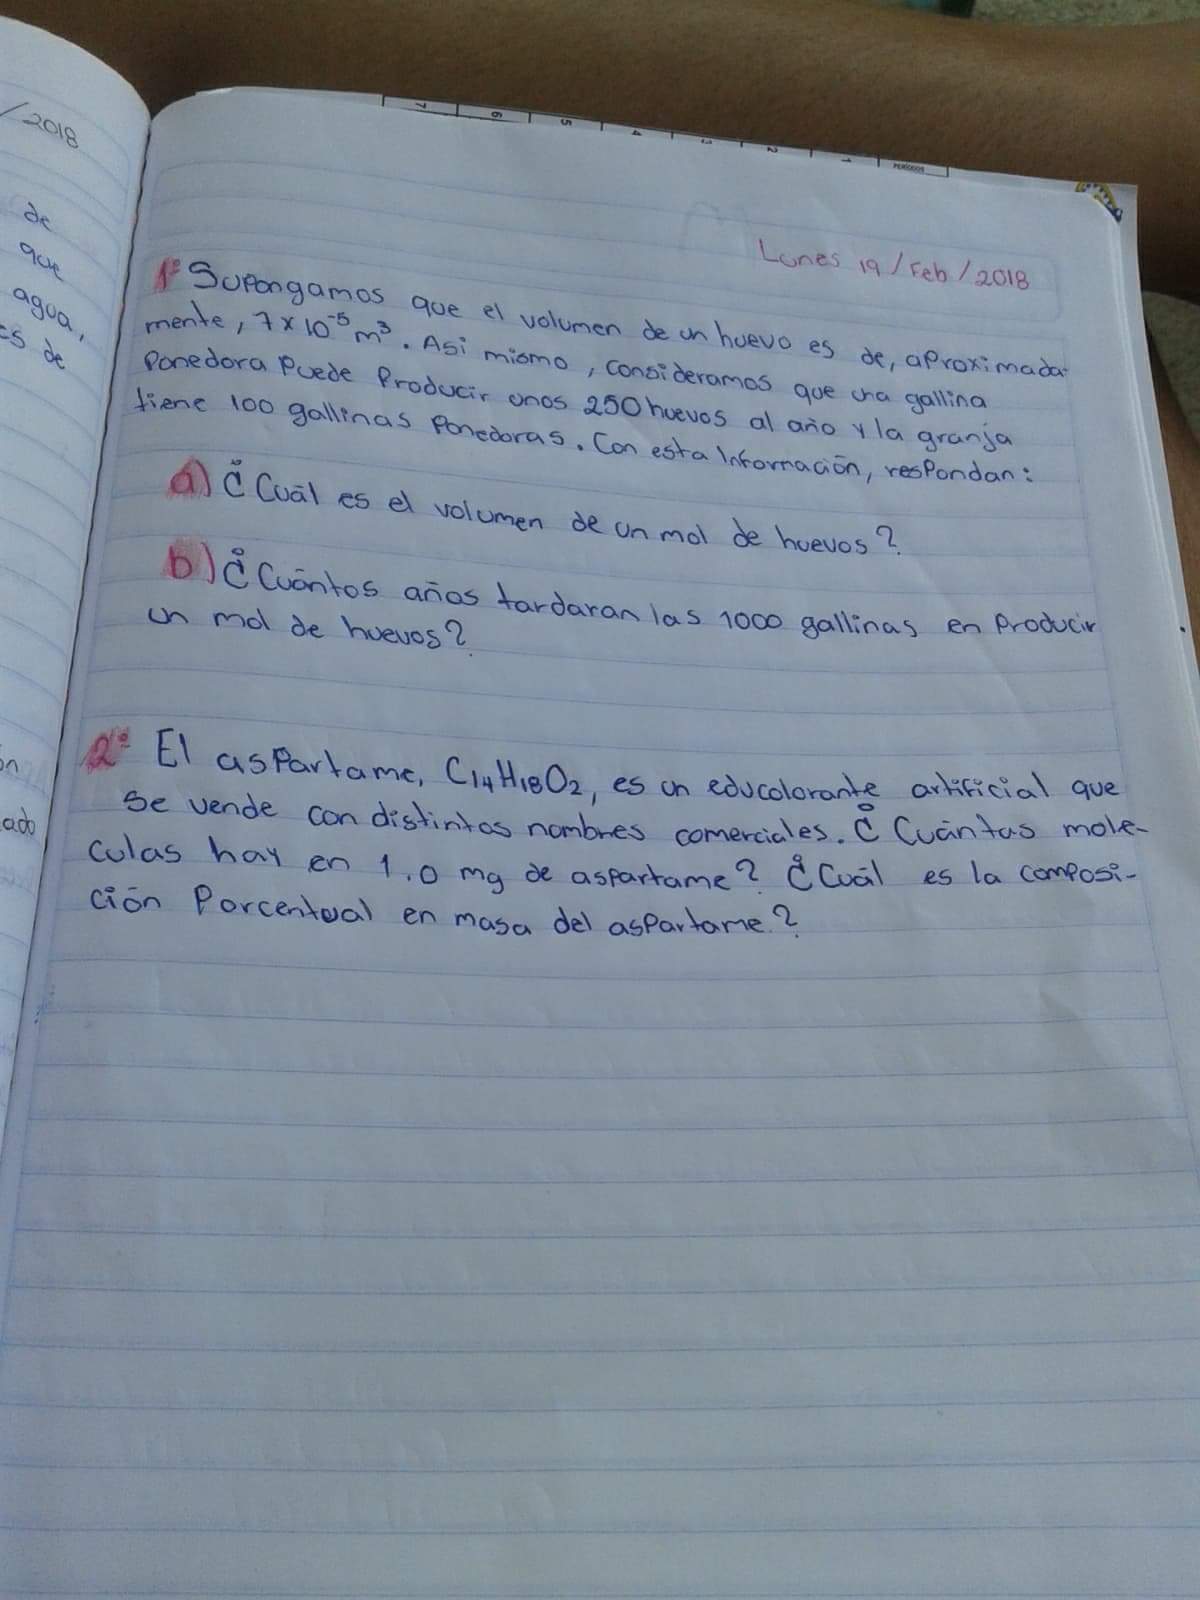 /2018
de
que
agua,
es de
ón
ado
7 6 5 4 3 2 1 PERÍODOS
Lunes 19/Feb/2018
1º Supongamos que el volumen de un huevo es de, aproximada-
mente, 7x10⁻⁵ m³. Asi mismo, consideramos que una gallina
Ponedora Puede Producir unos 250 huevos al año y la granja
tiene 100 gallinas Ponedoras. Con esta Información, respondan:
a) ¿Cuál es el volumen de un mol de huevos?
b) ¿Cuántos años tardaran las 1000 gallinas en Producir
un mol de huevos?
2º El asPartame, C₁₄H₁₈O₂, es un educolorante artificial que
se vende con distintos nombres comerciales. ¿Cuántas mole-
culas hay en 1.0 mg de aspartame? ¿Cuál es la composi-
ción Porcentual en masa del asPartame?